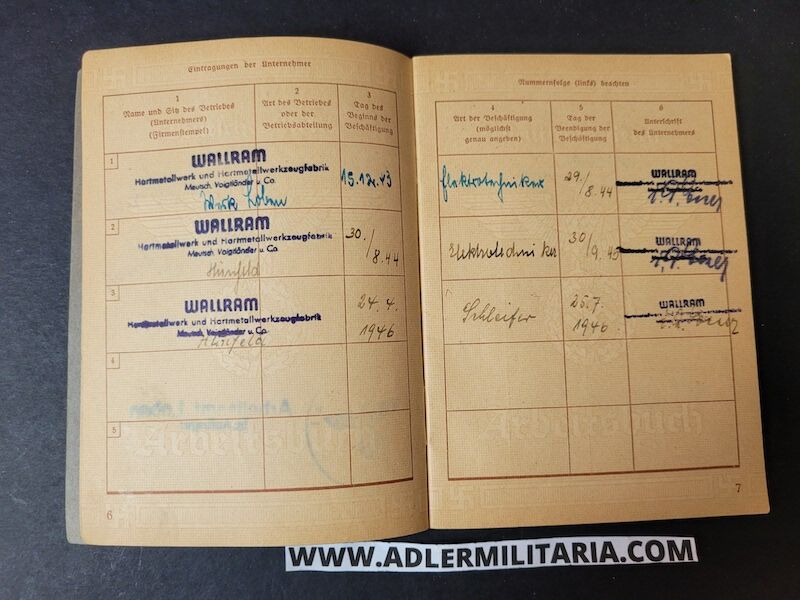 Eintragungen der Unternehmer
1
Name und Sitz des Betriebes
(Unternehmers)
(Firmenstempel)
2
Art des Betriebes
oder der
Betriebsabteilung
3
Tag des
Beginns der
Beschäftigung
1
WALLRAM
Hartmetallwerk und Hartmetallwerkzeugfabrik
Meutsch, Voigtländer u. Co.
Werk Loben
15.12.43
2
WALLRAM
Hartmetallwerk und Hartmetallwerkzeugfabrik
Meutsch, Voigtländer u. Co.
Hünfeld
30./
8.44
3
WALLRAM
Hartmetallwerk und Hartmetallwerkzeugfabrik
Meutsch, Voigtländer u. Co.
Hünfeld
24.4.
1946
4
Arbeitsamt Loben
5
Arbeitsbuch
6
Nummernfolge (links) beachten
4
Art der Beschäftigung
(möglichst
genau angeben)
5
Tag der
Beendigung der
Beschäftigung
6
Unterschrift
des Unternehmers
Elektrotechniker
29./
8.44
WALLRAM
Elektrotechniker
30/
9.45
WALLRAM
Schleifer
25.7.
1946
WALLRAM
Arbeitsbuch
7
WWW.ADLERMILITARIA.COM